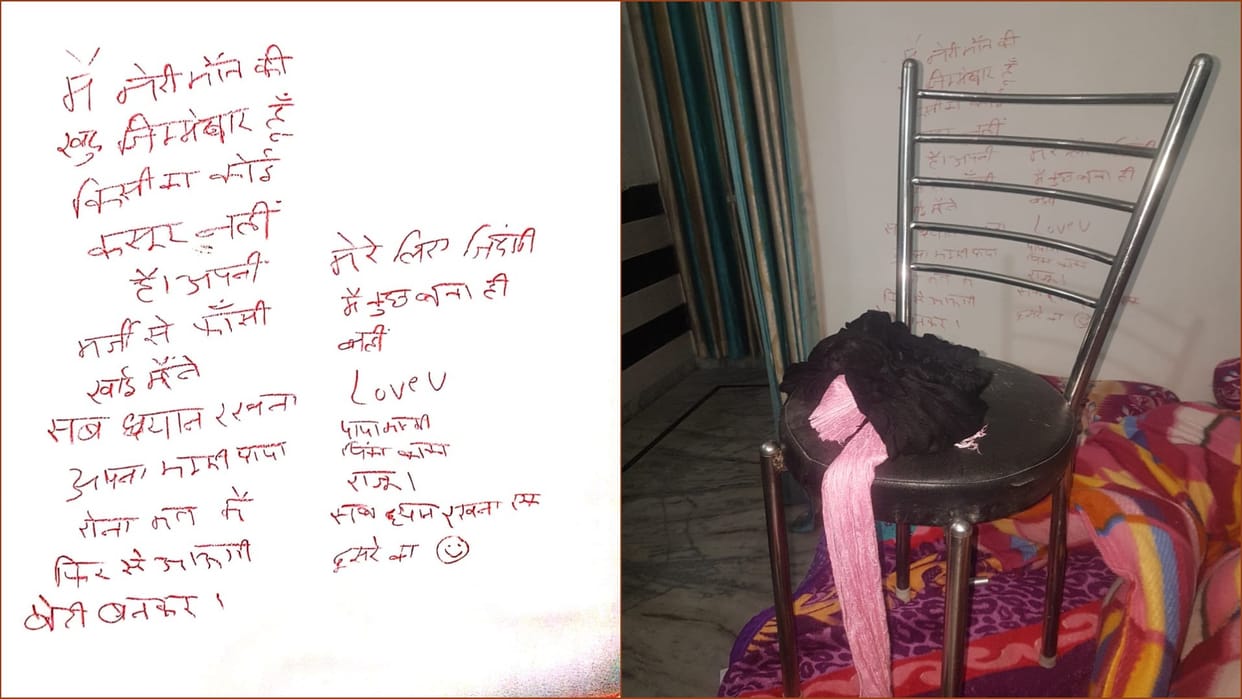 मैं मेरी मौत की
खुद जिम्मेदार हूँ
किसी का कोई
कसूर नहीं
है। अपनी
मर्जी से फाँसी
खाई मैंने
सब ध्यान रखना
अपना मम्मी पापा
रोना मत मैं
फिर से आऊंगी
बेटी बनकर।
मेरे लिए जिंदगी
मैं कुछ बचा ही
नहीं
Love U
पापा मम्मी
राजू।
सब ध्यान रखना एक
दूसरे का ☺
मेरी मौत की
जिम्मेदार हूँ
नहीं
है। अपनी
मैंने
बनकर।
मैं कुछ बचा ही
Love U
दूसरे का ☺